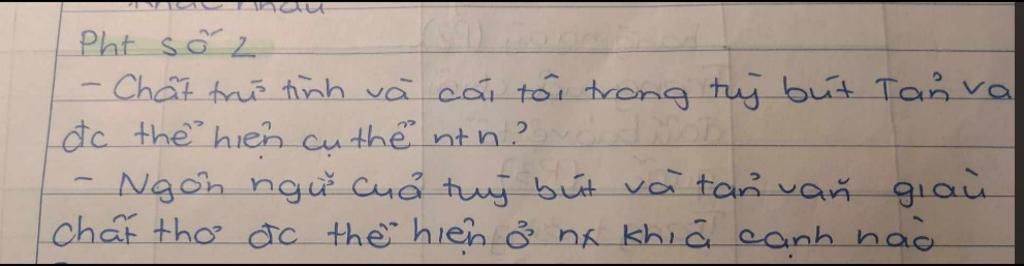 khác nhau
Pht số 2
- Chất trữ tình và cái tôi trong tuỳ bút Tản va
đc thể hiện cụ thể ntn?
- Ngôn ngữ cuả tuỳ bút và tản văn giàu
chất thơ đc thể hiện ở nx khiá cạnh nào